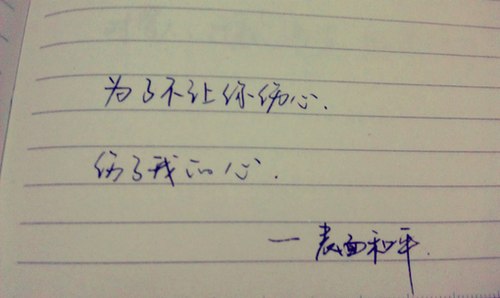 为了不让你伤心.
伤了我的心.
一表面和平.